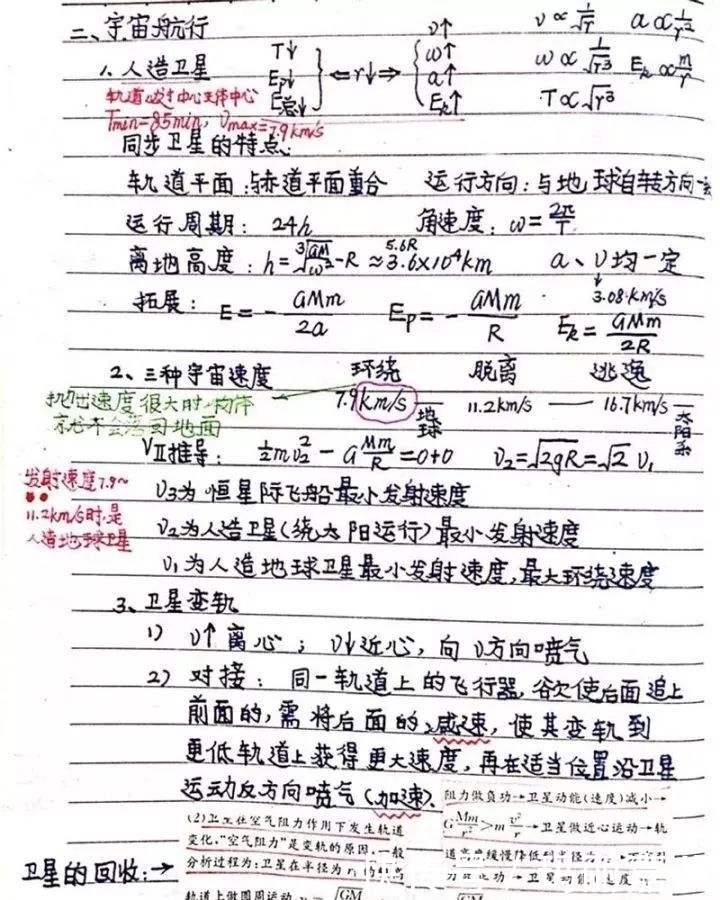 二、宇宙航行
1. 人造卫星
T↓ Ep↓ E总↓ } ⇐r↓⇒ { υ↑ ω↑ a↑ Ek↑
υ∝1/√r a∝1/r²
ω∝1/√r³ Ek∝m/r
T∝√r³
轨道必过中心天体中心
Tmin=85min, υmax=7.9km/s
同步卫星的特点:
轨道平面:与赤道平面重合 运行方向:与地球自转方向一致
运行周期: 24h 角速度: ω=2π/T
离地高度: h=∛(GM/ω²)-R≈3.6×10⁴km a、υ均一定
5.6R
3.08km/s
拓展: E=-GMm/2a Ep=-GMm/R Ek=GMm/2R
2、三种宇宙速度 环绕 脱离 逃逸
7.9km/s 地球 11.2km/s 16.7km/s 太阳系
抛出速度很大时,物体
就不会落回地面
VⅡ推导: ½mυ₂²-GMm/R=0+0 υ₂=√2gR=√2 υ₁
发射速度7.9~
11.2km/s时,是
人造地球卫星
υ3为恒星际飞船最小发射速度
υ2为人造卫星(绕太阳运行)最小发射速度
υ1为人造地球卫星最小发射速度,最大环绕速度
3、卫星变轨
1) υ↑离心; υ↓近心,向υ方向喷气
2) 对接: 同一轨道上的飞行器,欲使后面追上
前面的,需将后面的减速,使其变轨到
更低轨道上获得更大速度,再在适当位置沿卫星
运动反方向喷气(加速).
卫星的回收:→
(2)卫星在空气阻力作用下发生轨道
变化,"空气阻力"是变轨的原因,一般
分析过程为:卫星在半径为r₁的较高
轨道上做圆周运动
阻力做负功→卫星动能(速度)减小→
GMm/r²>mυ²/r→卫星做近心运动→轨
道高度缓慢降低到半径为
力做正功→卫星动能 速度